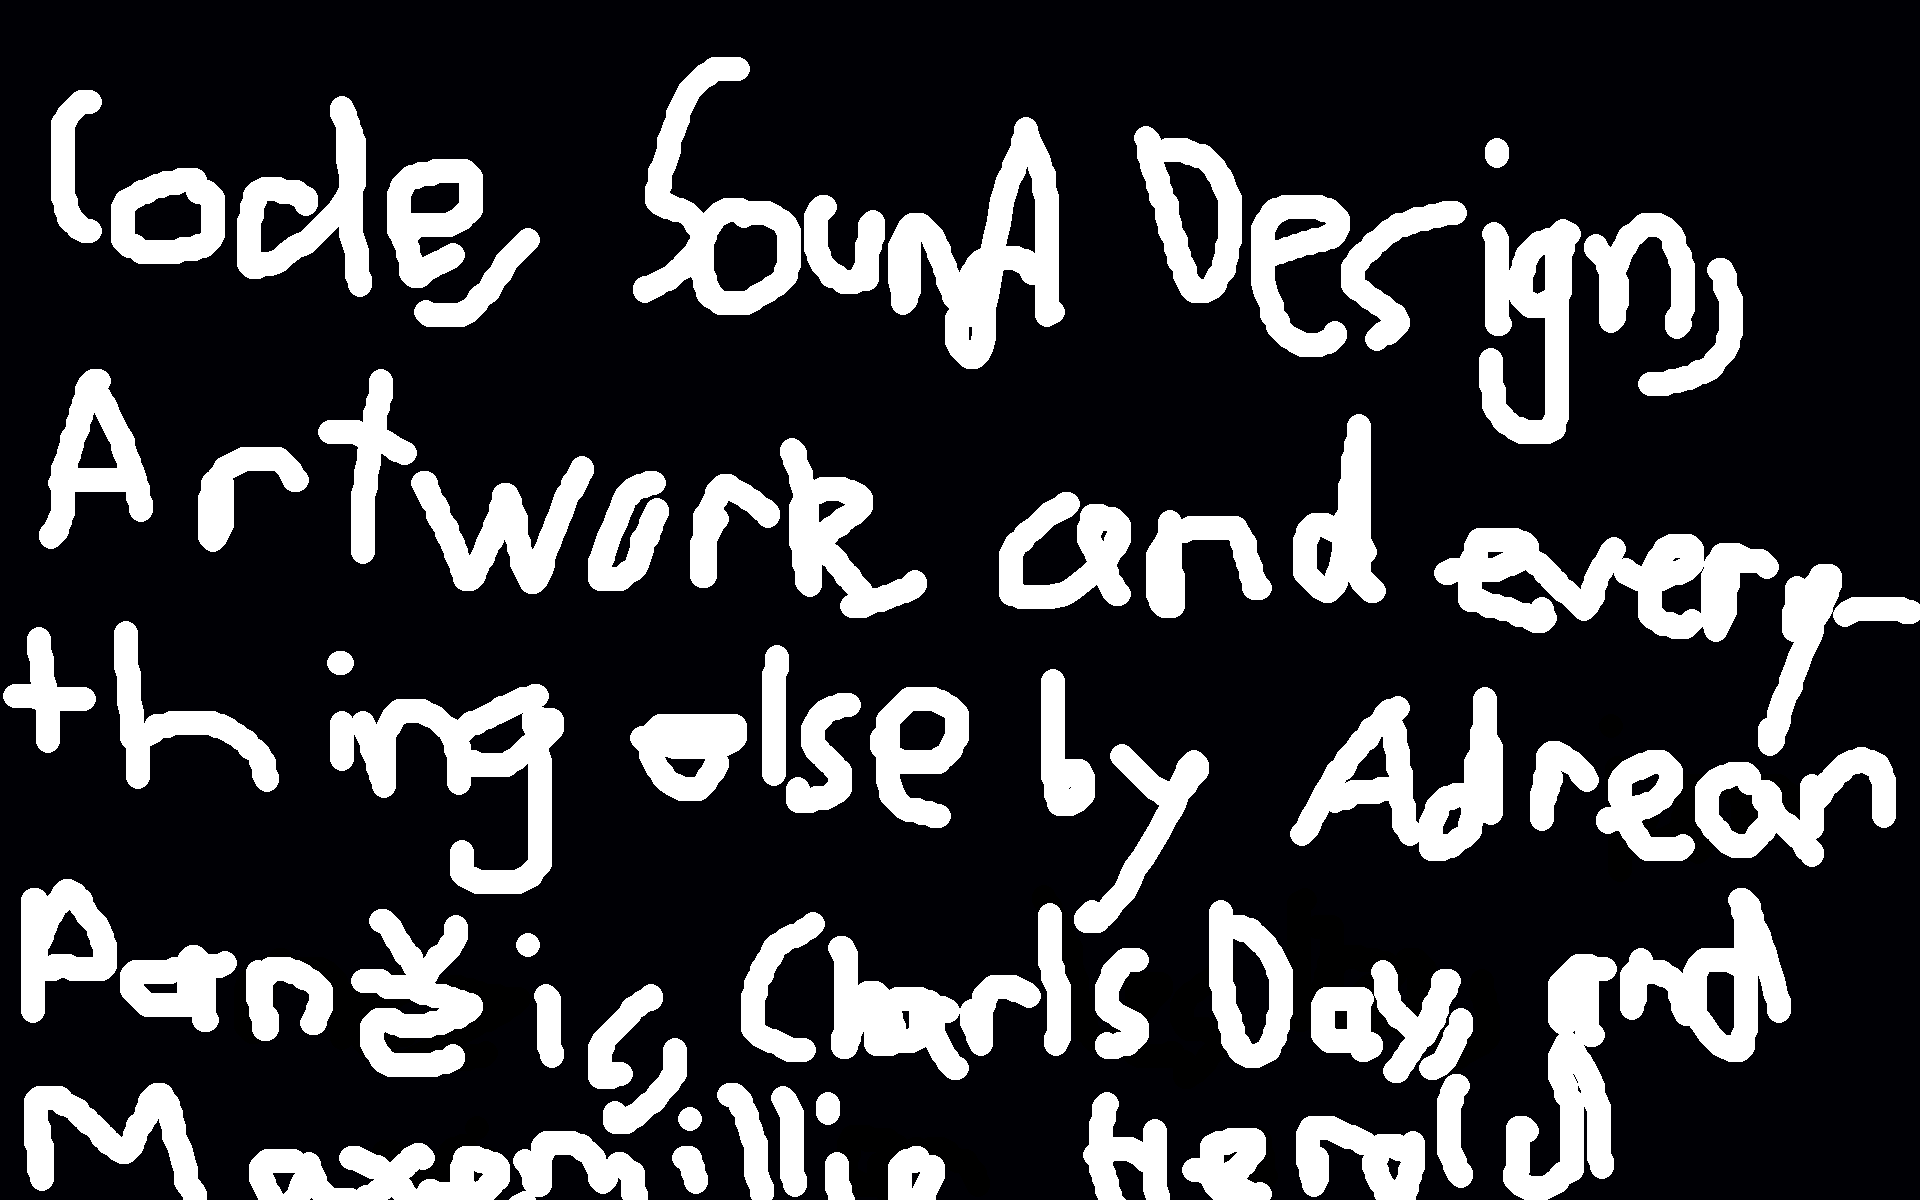 Code, Sound Design,
Artwork and every-
thing else by Adrean
Panžis, Charls Day, and
Maxemillie Herald